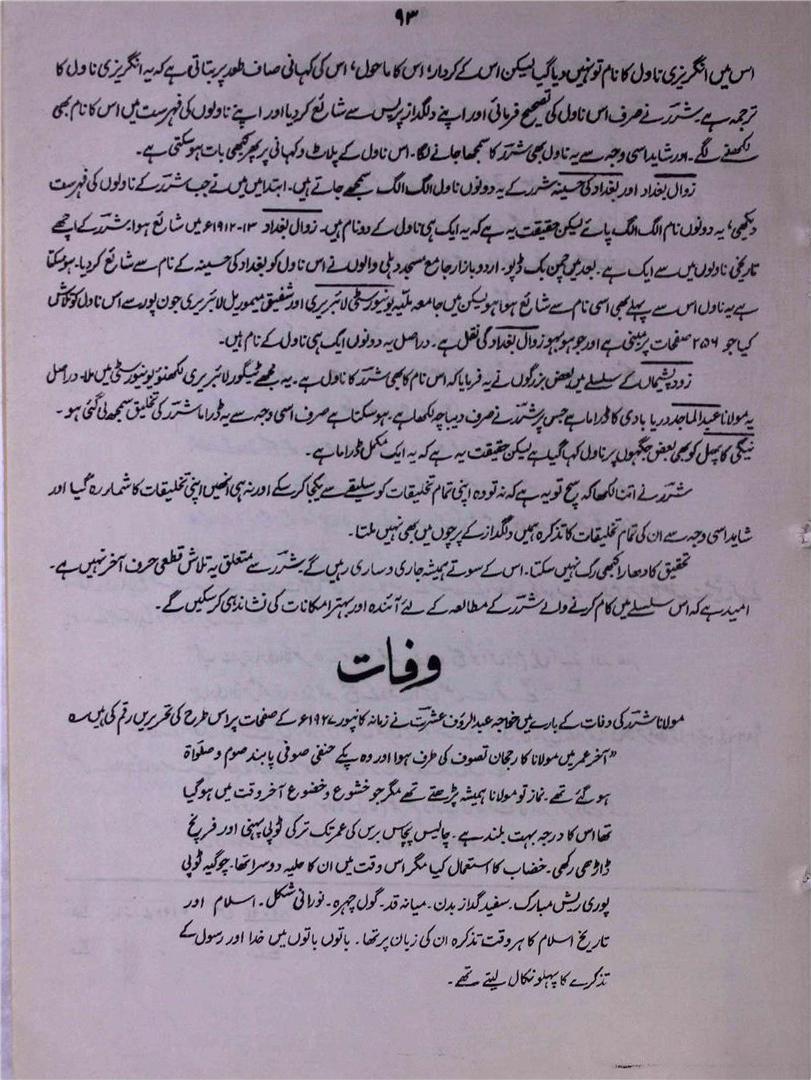 ۹۳
اس میں انگریزی ناول کا نام تو نہیں دیا گیا لیکن اس کے کردار، اس کا ماحول، اس کی کہانی صاف طور پر بتاتی ہے کہ یہ انگریزی ناول کا
ترجمہ ہے۔ شررؔ نے صرف اس ناول کی تصحیح فرمائی اور اپنے دلگداز پریس سے شائع کر دیا اور اپنے ناولوں کی فہرست میں اس کا نام بھی
لکھنے لگے۔ اور شاید اسی وجہ سے یہ ناول بھی شررؔ کا سمجھا جانے لگا۔ اس ناول کے پلاٹ و کہانی پر پھر کبھی بات ہو سکتی ہے۔
زوال بغداد اور بغداد کی حسینہ شرر کے یہ دونوں ناول الگ الگ سمجھے جاتے ہیں۔ ابتدا میں میں نے جب شررؔ کے ناولوں کی فہرست
دیکھی، یہ دونوں نام الگ الگ پائے لیکن حقیقت یہ ہے کہ یہ ایک ہی ناول کے دو نام ہیں۔ زوال بغداد ۱۳-۱۹۱۲ء میں شائع ہوا۔ شررؔ کے اچھے
تاریخی ناولوں میں سے ایک ہے۔ بعد میں چمن بک ڈپو۔ اردو بازار جامع مسجد دہلی والوں نے اس ناول کو بغداد کی حسینہ کے نام سے شائع کر دیا۔ ہو سکتا
ہے یہ ناول اس سے پہلے بھی اسی نام سے شائع ہوا ہو لیکن میں جامعہ ملیہ یونیورسٹی لائبریری اور شفیق میموریل لائبریری جون پور سے اس ناول کو تلاش
کیا جو ۲۵۶ صفحات پر مبنی ہے اور جو ہو بہو زوال بغداد کی نقل ہے۔ دراصل یہ دونوں ایک ہی ناول کے نام ہیں۔
زود پشیماں کے سلسلے میں بعض بزرگوں نے یہ فرمایا کہ اس نام کا بھی شررؔ کا ناول ہے۔ یہ مجھے ٹیگور لائبریری لکھنؤ یونیورسٹی میں ملا۔ دراصل
یہ مولانا عبدالماجد دریابادی کا ڈراما ہے جس پر شررؔ نے صرف دیباچہ لکھا ہے۔ ہو سکتا ہے صرف اسی وجہ سے یہ ڈراما شررؔ کی تخلیق سمجھ لی گئی ہو۔
نیکی کا پھل کو بھی بعض جگہوں پر ناول کہا گیا ہے لیکن حقیقت یہ ہے کہ یہ ایک مکمل ڈراما ہے۔
شررؔ نے اتنا لکھا کہ سچ تو یہ ہے کہ نہ تو وہ اپنی تمام تخلیقات کو سلیقے سے یکجا کر سکے اور نہ ہی انھیں اپنی تخلیقات کا شمار رہ گیا اور
شاید اسی وجہ سے ان کی تمام تخلیقات کا تذکرہ ہمیں دلگداز کے پرچوں میں بھی نہیں ملتا۔
تحقیق کا دھارا کبھی رک نہیں سکتا۔ اس کے سوتے ہمیشہ جاری و ساری رہیں گے۔ شررؔ سے متعلق یہ تلاش قطعی حرف آخر نہیں ہے۔
امید ہے کہ اس سلسلے میں کام کرنے والے شررؔ کے مطالعہ کے لئے آئندہ اور بہتر امکانات کی نشاندہی کر سکیں گے۔
وفات
مولانا شررؔ کی وفات کے بارے میں خواجہ عبدالرؤف عشرت نے زمانہ کانپور ۱۹۲۷ء کے صفحات پر اس طرح کی تحریریں رقم کی ہیں
"آخر عمر میں مولانا کا رجحان تصوف کی طرف ہوا اور وہ پکے حنفی صوفی پابند صوم و صلوٰۃ
ہو گئے تھے۔ نماز تو مولانا ہمیشہ پڑھتے تھے مگر جو خشوع و خضوع آخر وقت میں ہو گیا
تھا اس کا درجہ بہت بلند ہے۔ چالیس پچاس برس کی عمر تک ترکی ٹوپی پہنی اور فرنچ
ڈاڑھی رکھی۔ خضاب کا استعمال کیا مگر اس وقت میں ان کا حلیہ دوسرا تھا۔ چوگیہ ٹوپی
پوری ریش مبارک۔ سفید گداز بدن۔ میانہ قد۔ گول چہرہ۔ نورانی شکل۔ اسلام اور
تاریخ اسلام کا ہر وقت تذکرہ ان کی زبان پر تھا۔ باتوں باتوں میں خدا اور رسول کے
تذکرے کا پہلو نکال لیتے تھے۔